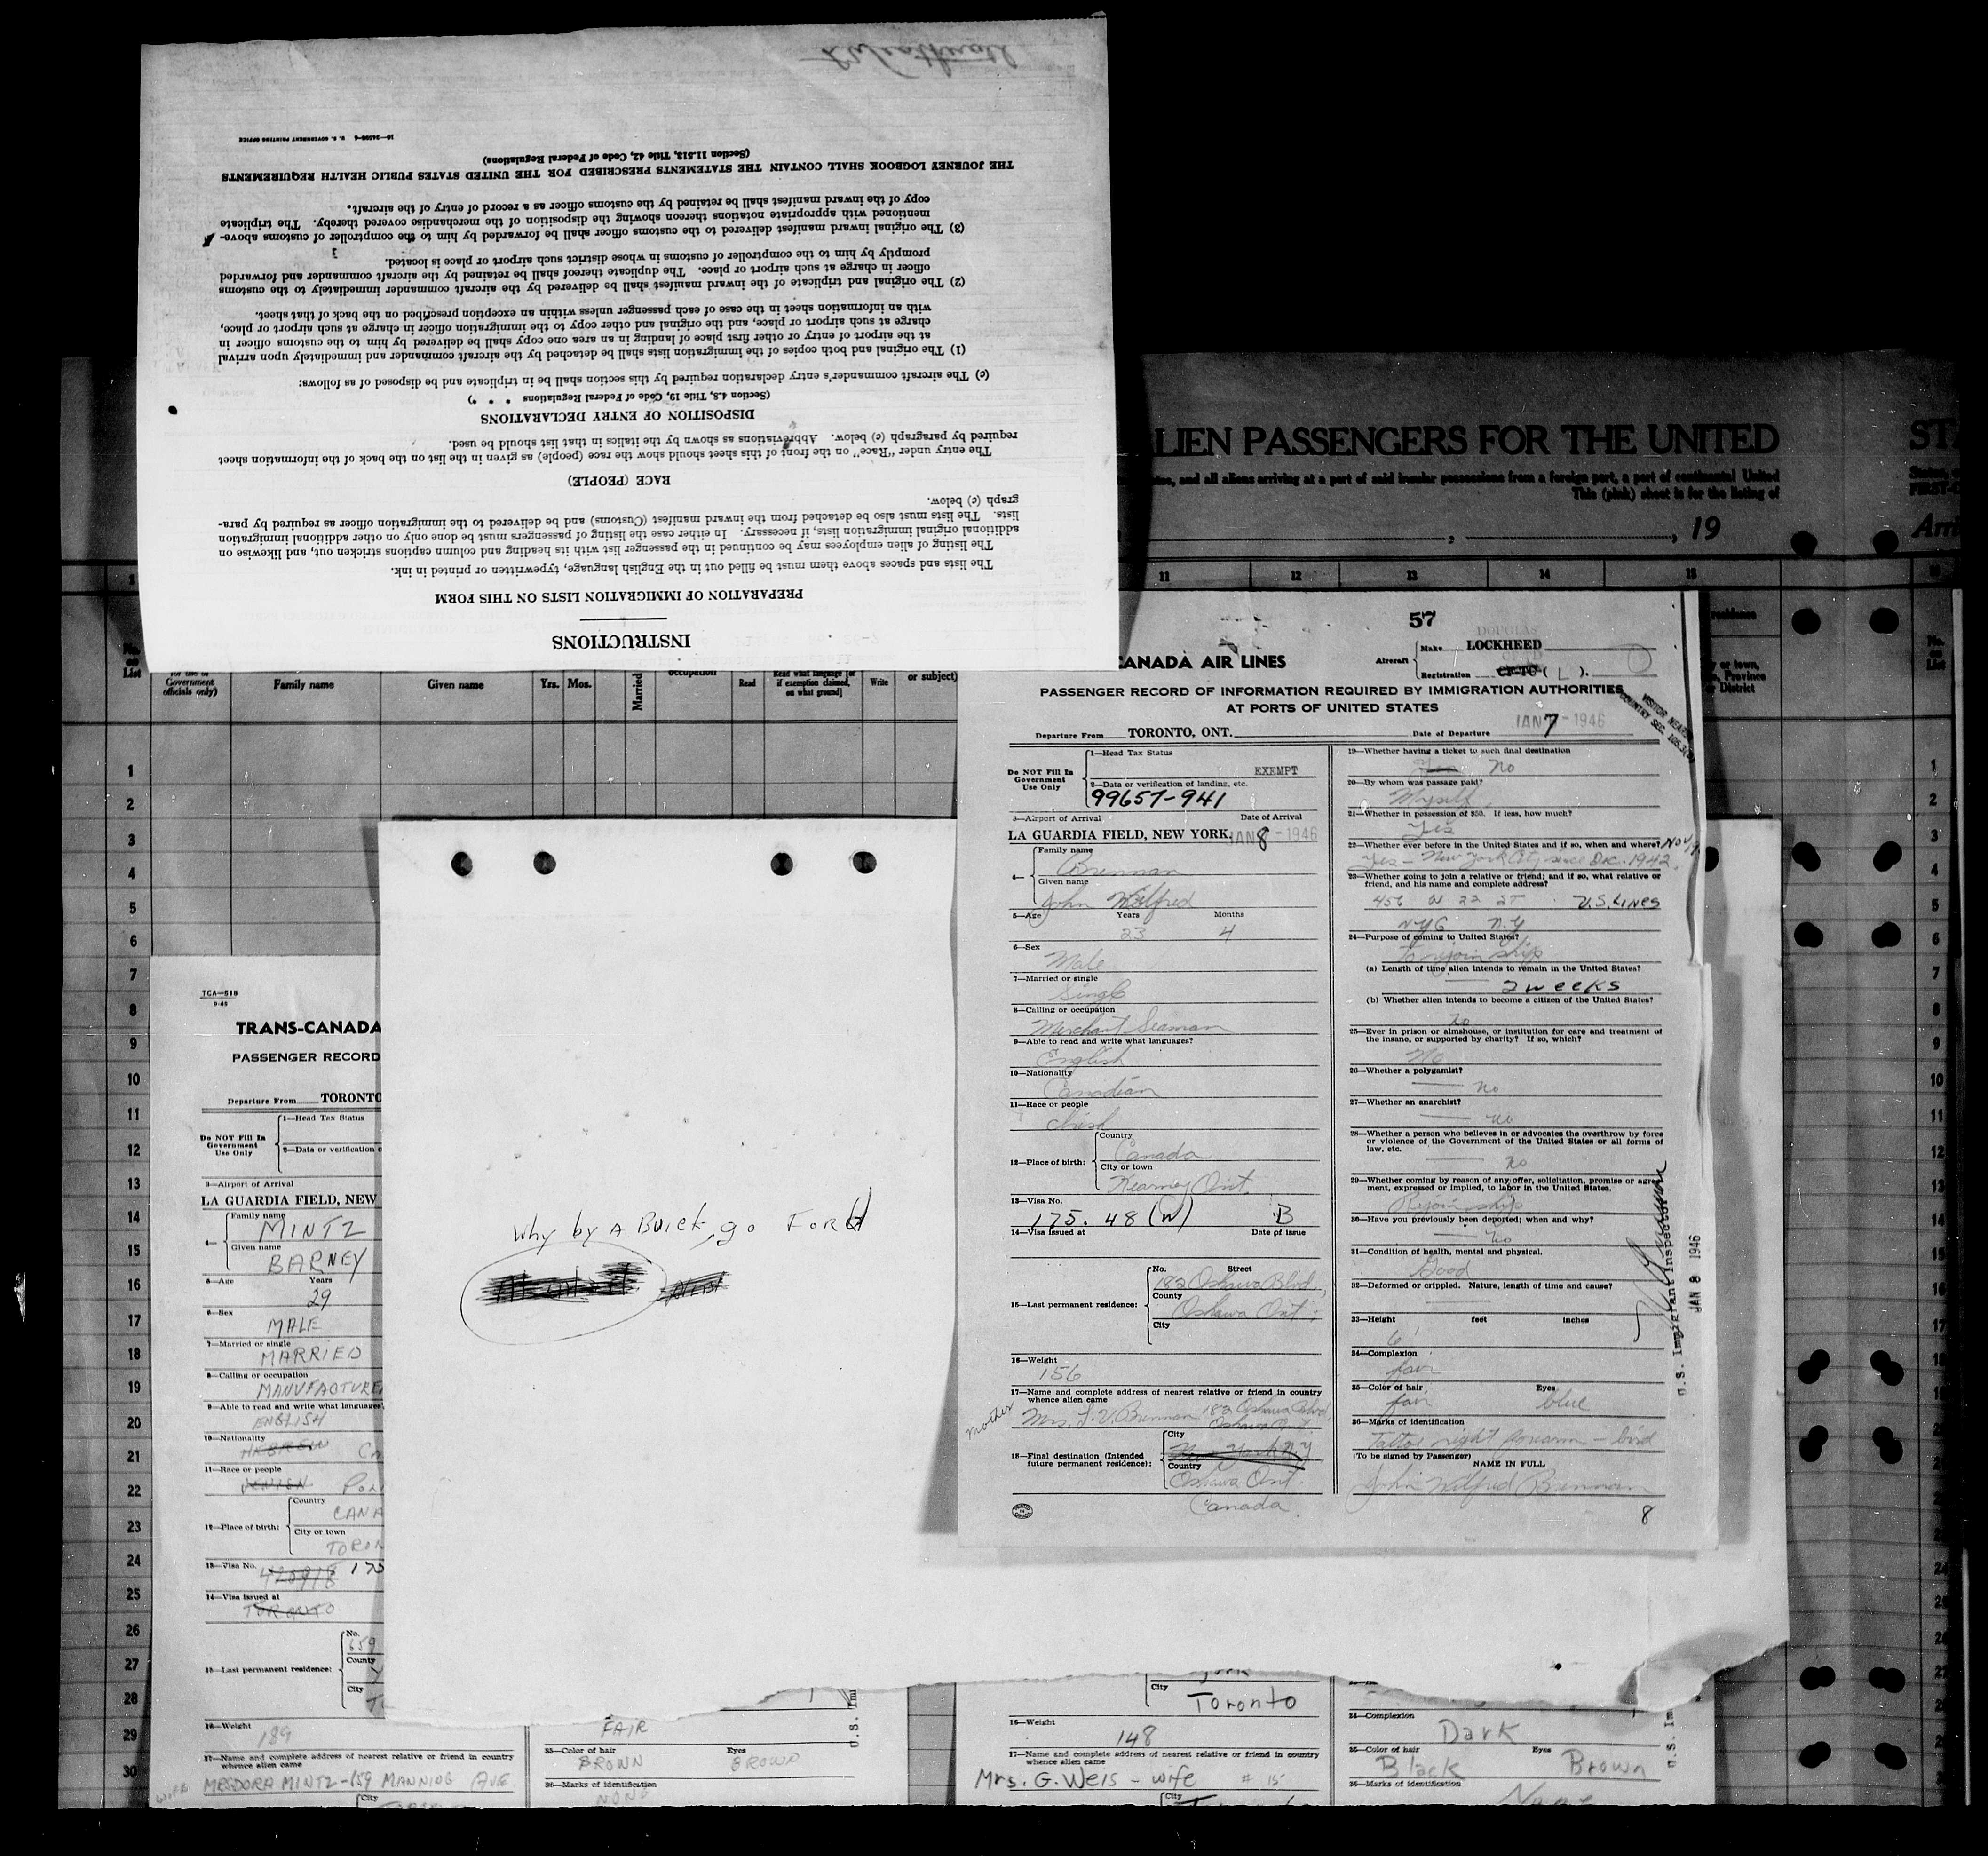 INSTRUCTIONS
PREPARATION OF IMMIGRATION LISTS ON THIS FORM
The lists and spaces above them must be filled out in the English language, typewritten or printed in ink.
The listing of alien employees may be continued in the passenger list with its heading and column captions stricken out, and likewise on
additional original immigration lists, if necessary. In either case the listing of passengers must be done only on other additional immigration
lists. The lists must also be detached from the inward manifest (Customs) and be delivered to the immigration officer as required by para-
graph (c) below.
RACE (PEOPLE)
The entry under "Race" on the front of this sheet should show the race (people) as given in the list on the back of the information sheet
required by paragraph (c) below. Abbreviations as shown by the italics in that list should be used.
DISPOSITION OF ENTRY DECLARATIONS
(Section 4.8, Title 19, Code of Federal Regulations * * *)
(c) The aircraft commander's entry declaration required by this section shall be in triplicate and be disposed of as follows:
(1) The original and both copies of the immigration lists shall be detached by the aircraft commander and immediately upon arrival
at the airport of entry or other first place of landing in an area one copy shall be delivered by him to the customs officer in
charge at such airport or place, and the original and other copy to the immigration officer in charge at such airport or place,
with an information sheet in the case of each passenger unless within an exception prescribed on the back of that sheet.
(2) The original and triplicate of the inward manifest shall be delivered by the aircraft commander immediately to the customs
officer in charge at such airport or place. The duplicate thereof shall be retained by the aircraft commander and forwarded
promptly by him to the comptroller of customs in whose district such airport or place is located.
(3) The original inward manifest delivered to the customs officer shall be forwarded by him to the comptroller of customs above-
mentioned with appropriate notations thereon showing the disposition of the merchandise covered thereby. The triplicate
copy of the inward manifest shall be retained by the customs officer as a record of entry of the aircraft.
THE JOURNEY LOGBOOK SHALL CONTAIN THE STATEMENTS PRESCRIBED FOR THE UNITED STATES PUBLIC HEALTH REQUIREMENTS
(Section 11.513, Title 42, Code of Federal Regulations)
U. S. GOVERNMENT PRINTING OFFICE
LIEN PASSENGERS FOR THE UNITED
STA
and all aliens arriving at a port of said insular possessions from a foreign port, a port of continental United
This (pink) sheet is for the listing of
, 19
Arri
11 12 13 14 15
No. on List
Government officials only)
Family name
Given name
Yrs. Mos.
Married
occupation
Read
Read what language [or if exemption claimed, on what ground]
Write
or subject)
1
2
3
4
5
6
7
8
9
10
11
12
13
14
15
16
17
18
19
20
21
22
23
24
25
26
27
28
29
30
57
CANADA AIR LINES
Aircraft
Make LOCKHEED
DOUGLAS
Registration (L).
PASSENGER RECORD OF INFORMATION REQUIRED BY IMMIGRATION AUTHORITIES
AT PORTS OF UNITED STATES
Departure From TORONTO, ONT.
Date of Departure JAN 7 - 1946
Do NOT Fill In Government Use Only
1—Head Tax Status
EXEMPT
2—Data or verification of landing, etc.
99657-941
3—Airport of Arrival Date of Arrival
LA GUARDIA FIELD, NEW YORK. JAN 8 - 1946
4—
Family name
Brennan
Given name
John Wilfred
5—Age Years Months
23 4
6—Sex
Male
7—Married or single
Single
8—Calling or occupation
Merchant Seaman
9—Able to read and write what languages?
English
10—Nationality
Canadian
11—Race or people
Irish
12—Place of birth:
Country
Canada
City or town
Kearney Ont.
13—Visa No.
175. 48 (W) B
14—Visa Issued at Date of issue
15—Last permanent residence:
No. Street
182 Oshawa Blvd.,
County
Oshawa Ont.
City
16—Weight
156
17—Name and complete address of nearest relative or friend in country
whence alien came
mother
Mrs. L. V. Brennan 182 Oshawa Blvd
Oshawa Ont
18—Final destination (Intended future permanent residence):
City
New York N.Y
Country
Oshawa Ont.
Canada
19—Whether having a ticket to such final destination
Yes No
20—By whom was passage paid?
Myself
21—Whether in possession of $50. If less, how much?
Yes
22—Whether ever before in the United States and if so, when and where?
Yes - New York City since Dec. 1942
23—Whether going to join a relative or friend; and if so, what relative or
friend, and his name and complete address?
456 W 22 ST U.S. LINES
NYC N.Y
24—Purpose of coming to United States?
To rejoin ship
(a) Length of time alien intends to remain in the United States?
2 weeks
(b) Whether alien intends to become a citizen of the United States?
No
25—Ever in prison or almshouse, or institution for care and treatment of
the insane, or supported by charity? If so, which?
No
26—Whether a polygamist?
no
27—Whether an anarchist?
no
28—Whether a person who believes in or advocates the overthrow by force
or violence of the Government of the United States or all forms of
law, etc.
no
29—Whether coming by reason of any offer, solicitation, promise or agree-
ment, expressed or implied, to labor in the United States.
Rejoin ship
30—Have you previously been deported; when and why?
No
31—Condition of health, mental and physical.
Good
32—Deformed or crippled. Nature, length of time and cause?
33—Height feet inches
6'
34—Complexion
fair
35—Color of hair Eyes
fair blue
36—Marks of identification
Tattoo right forearm - bird
(To be signed by Passenger)
NAME IN FULL
John Wilfred Brennan
8
U.S. Immigrant Inspector
JAN 8 1946
Why by A Buick, go Ford
TCA—518
9-45
TRANS-CANADA
PASSENGER RECORD
Departure From TORONTO
Do NOT Fill In Government Use Only
1—Head Tax Status
2—Data or verification
3—Airport of Arrival
LA GUARDIA FIELD, NEW
4—
Family name
MINTZ
Given name
BARNEY
5—Age Years
29
6—Sex
MALE
7—Married or single
MARRIED
8—Calling or occupation
MANUFACTURE
9—Able to read and write what languages
ENGLISH
10—Nationality
HEBREW CA
11—Race or people
POL
12—Place of birth:
Country
CANA
City or town
TORON
13—Visa No.
14—Visa Issued at
TORONTO
15—Last permanent residence:
No.
659
County
Y
City
T
16—Weight
189
17—Name and complete address of nearest relative or friend in country
whence alien came
WIFE
MRS DORA MINTZ - 659 MANNING AVE
City
FAIR
35—Color of hair Eyes
BROWN BROWN
36—Marks of identification
NONE
York
City
Toronto
16—Weight
148
17—Name and complete address of nearest relative or friend in country
whence alien came
Mrs. G. Weis - wife # 15
City
34—Complexion
Dark
35—Color of hair Eyes
Black Brown
36—Marks of identification
None